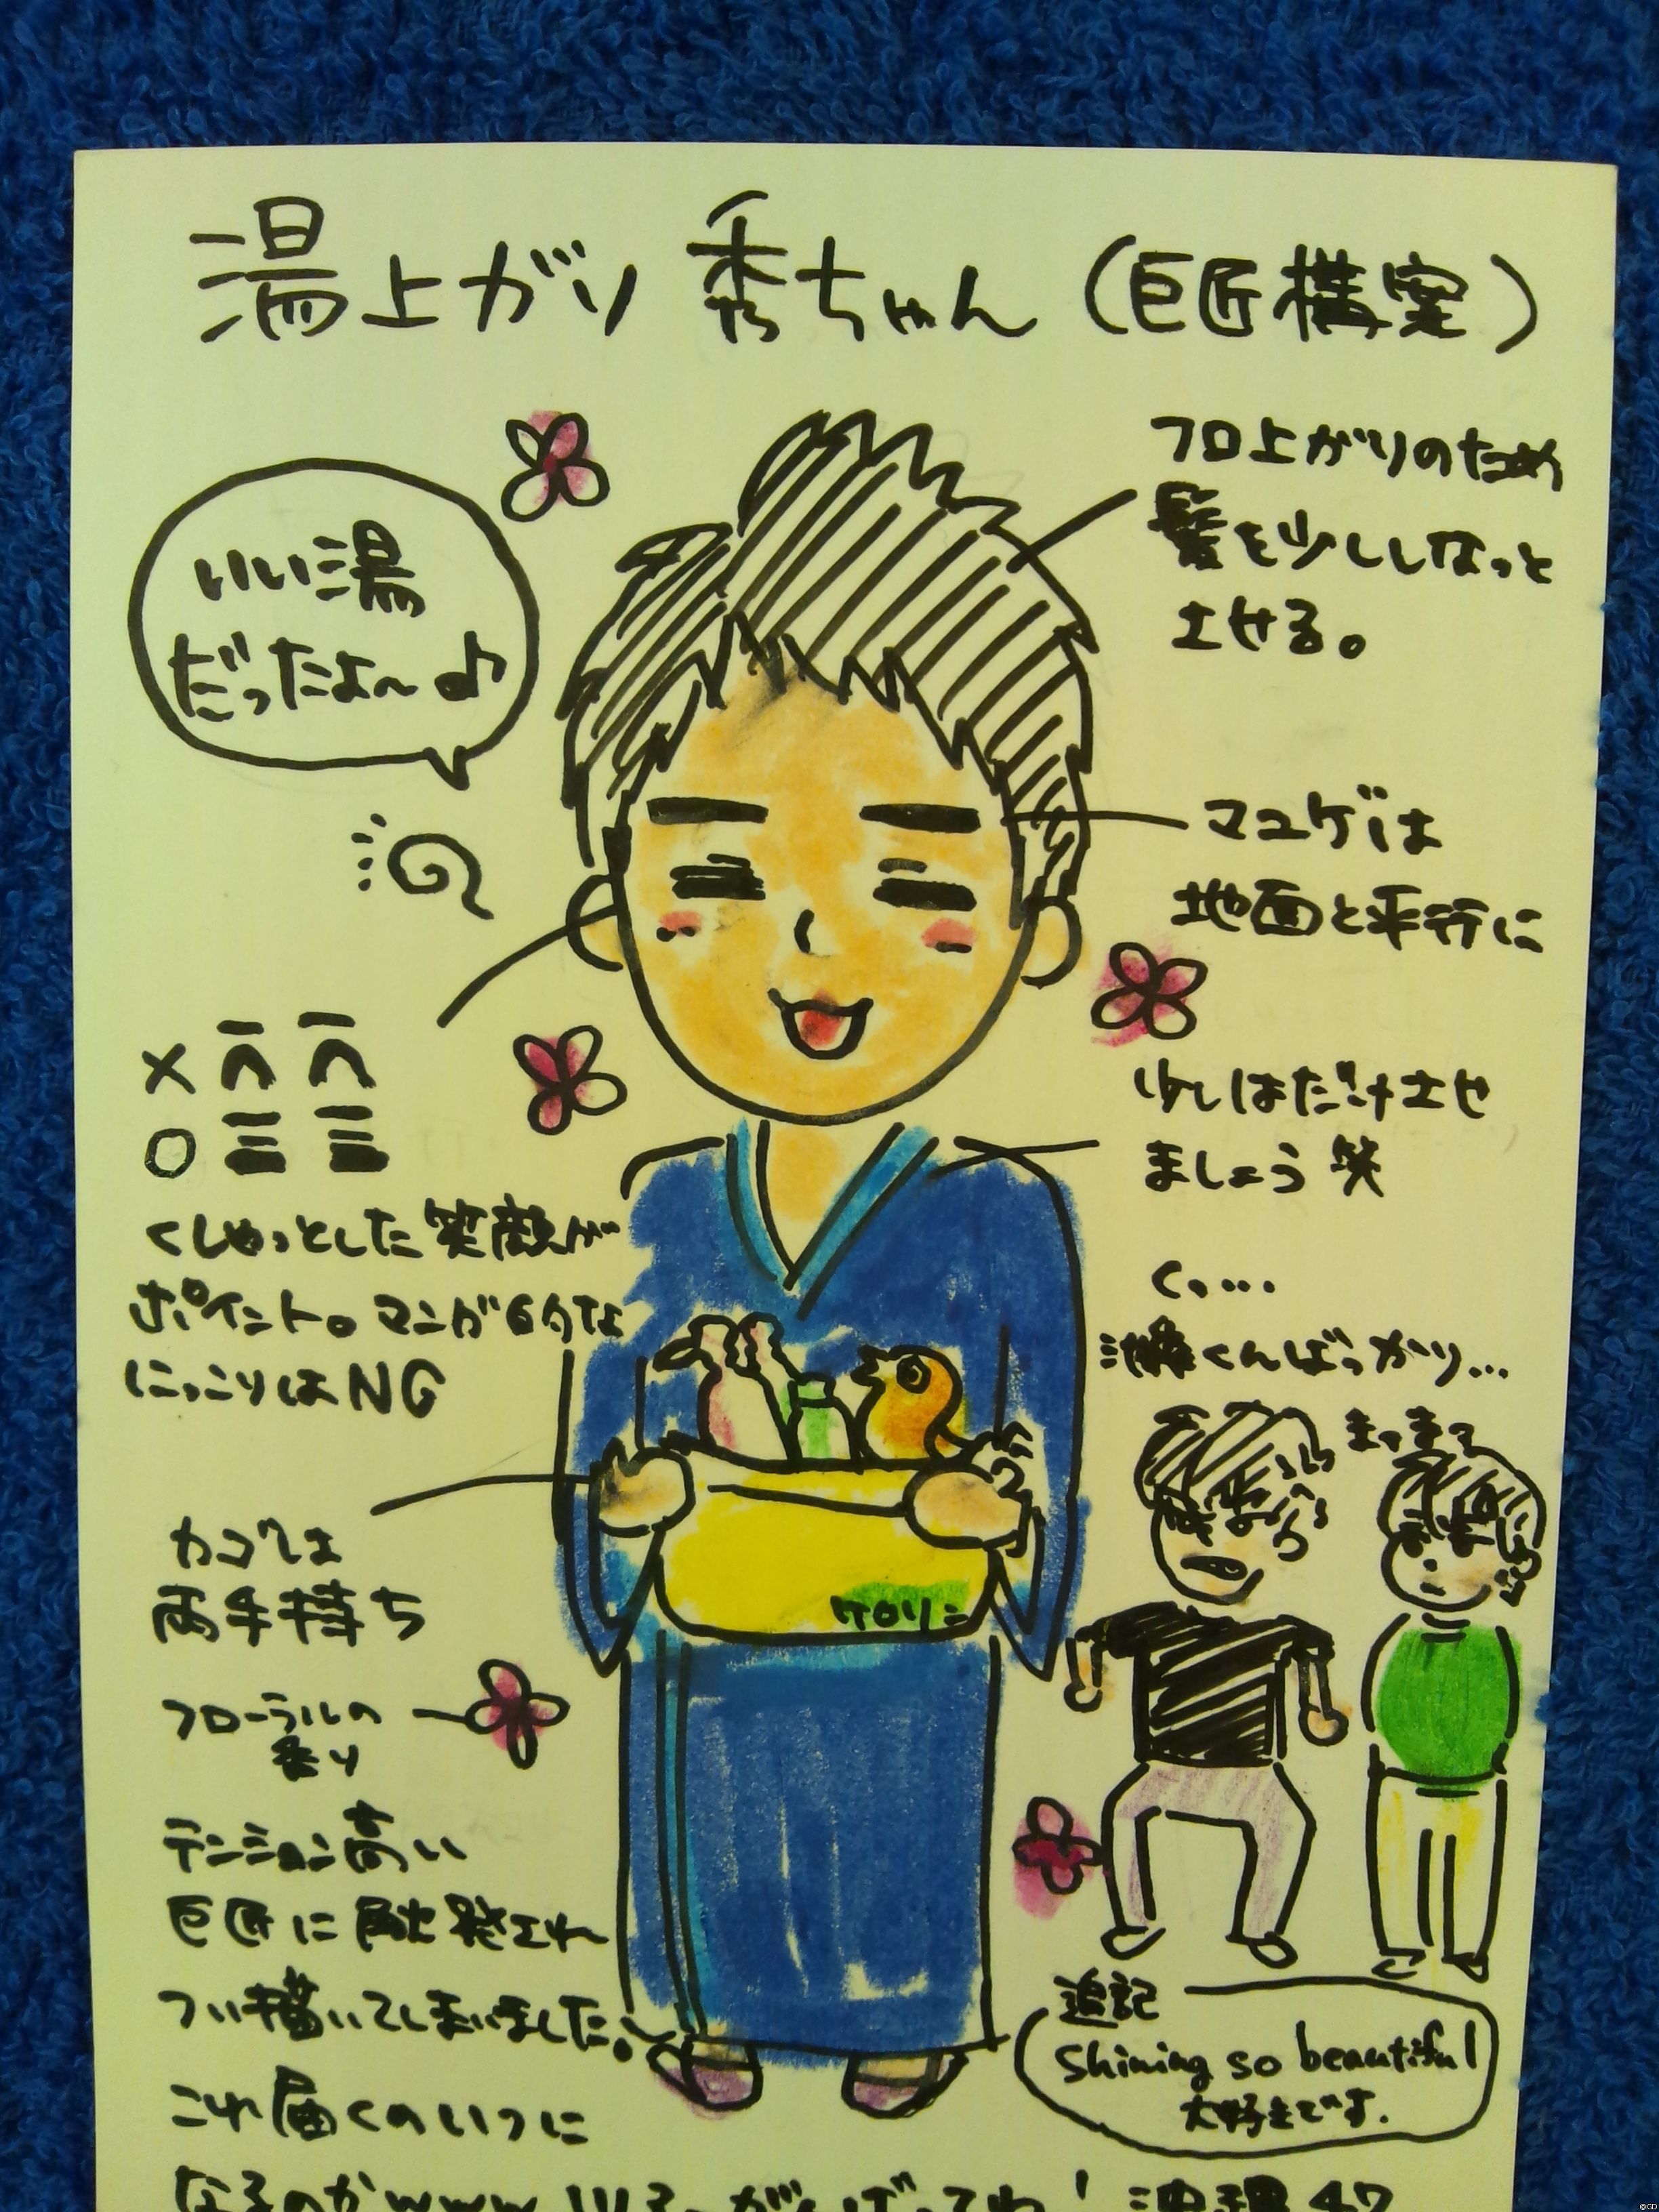 湯上がり 秀ちゃん (巨匠構案)
いい湯
だったよ〜♪
フロ上がりのため
髪を少ししなっと
させる。
マユゲは
地面と平行に
×
○
くしゃっとした笑顔が
ポイント。マンガ的な
にっこりはNG
少しはだけさせ
ましょう 笑
くっ…
くんばっかり…
まぁまぁ
カゴは
両手持ち
ケロリン
フローラルの
香り
テンション高い
巨匠に触発され
つい描いてしまいました。
これ届くのいつに
なるのかwww
追記
Shining so beautiful
大好きです。